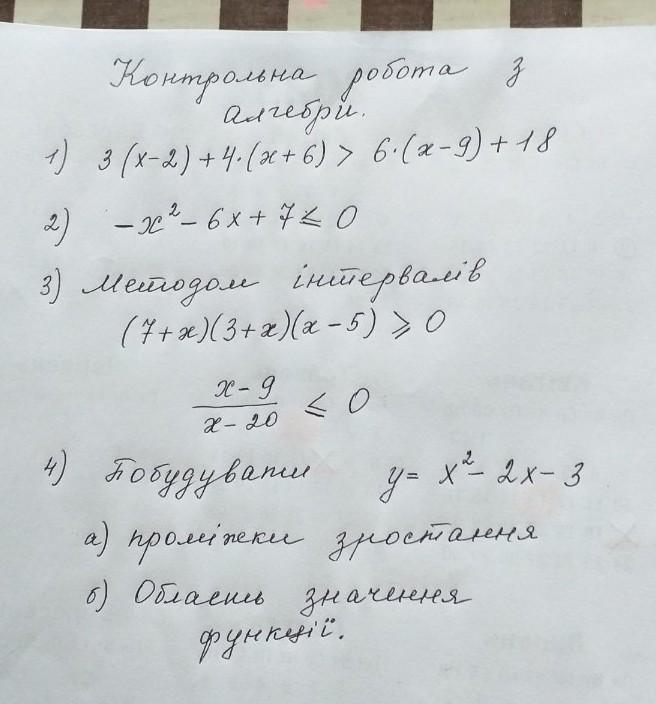 Контрольна робота з
алгебри.
1) 3(x-2)+4·(x+6) > 6·(x-9)+18
2) -x²-6x+7 ≤ 0
3) Методом інтервалів
(7+x)(3+x)(x-5) ⩾ 0
x-9
/
x-20 ≤ 0
4) Побудувати y= x²-2x-3
а) проміжки зростання
б) Область значення
функції.